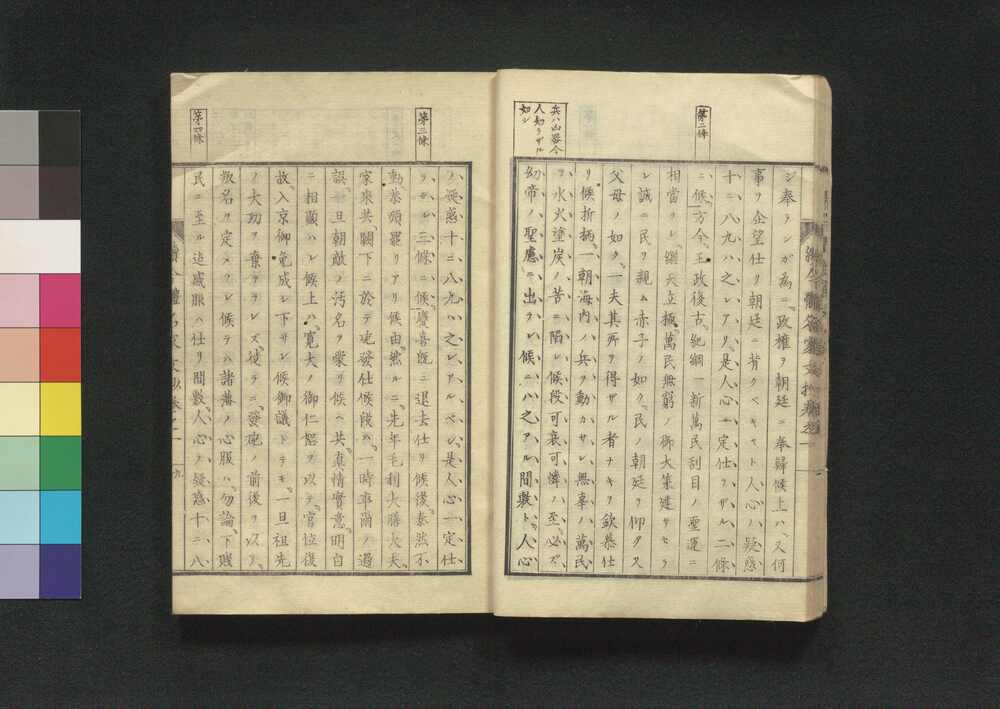 第二條
兵ハ凶器今
人知ラザル
如シ
シ奉ランガ為ニ政權ヲ朝廷ニ奉歸候上ハ又何
事ヲ企望仕リ朝廷ニ背クベキヤト人心ノ疑惑
十ニ八九ハ之レアリ是人心一定仕ラザル二條
ニ候方今王政復古紀綱一新萬民刮目ノ聖運ニ
相當リシ繼天立極萬民無窮ノ御大業建サセラ
レ誠ニ民ヲ親ム赤子ノ如ク民ノ朝廷ヲ仰グ又
父母ノ如ク一夫其所ヲ得ザル者ナキヲ欽慕仕
リ候折柄一朝海内ノ兵ヲ動カサレ無辜ノ萬民
ヲ水火塗炭ノ苦ニ陷レ候段可哀可憐ハ至必ズ
幼帝ノ聖慮ニ出ラレ候ニハ之アル間敷ト人心
第三條
第四條
ノ疑惑十ニ八九ハ之レアルベシ是人心一定仕
ラザル三條ニ候慶喜既ニ退去仕リ候後泰然不
動恭順罷リアリ候由然ルニ先年毛利大膳大夫
家來共闕下ニ於テ砲發仕候段ハ一時事爾ノ過
誤一旦朝敵ノ汚名ヲ蒙リ候ヘ共真情實意明白
ニ相顯ハレ候上ハ寛大ノ御仁恕ヲ以テ官位復
故入京御免成シ下サレ候御議トテモ一旦祖先
ノ大功ヲ棄テラレズ徒ラニ發砲ノ前後ヲ以テ
叛名ヲ定メラレ候テハ諸藩ノ心服ハ勿論下賤
民ニ至ル迄感服ハ仕リ間敷人心ノ疑惑十ニ八
九